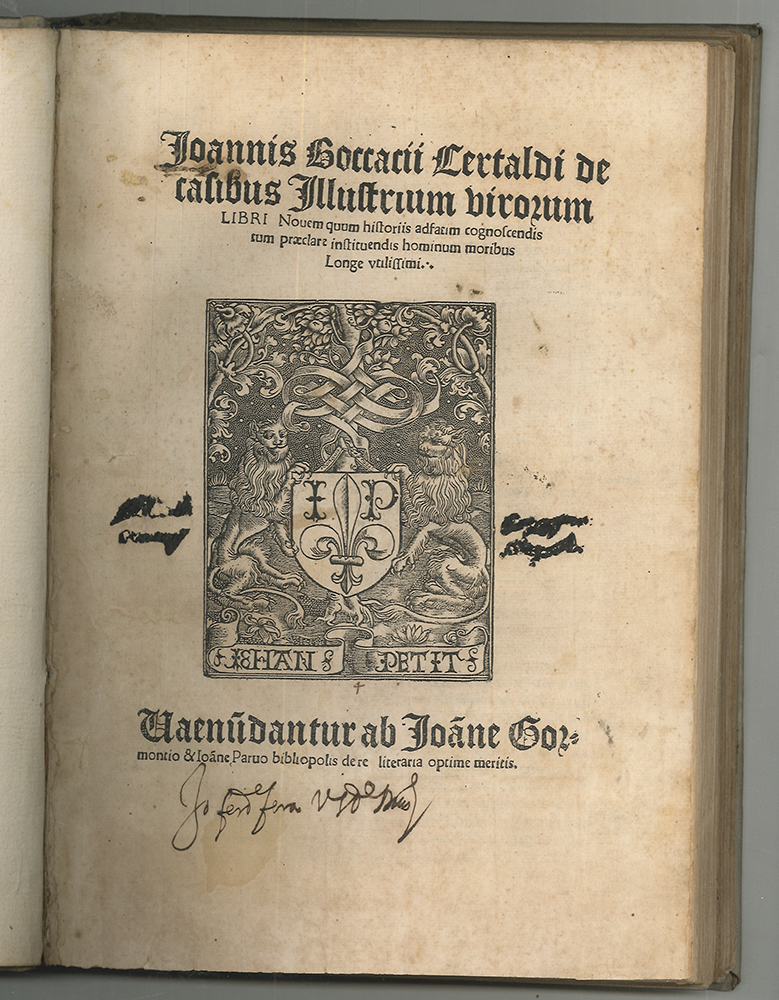 Joannis Boccacii Certaldi de
casibus Illustrium virorum
LIBRI Novem quum historiis adfatim cognoscendis
tum præclare instituendis hominum moribus
Longe vtilissimi.·.
I P
IEHAN PETIT
Uaenūdantur ab Joāne Gor-
montio & Ioāne Paruo bibliopolis de re literaria optime meritis.